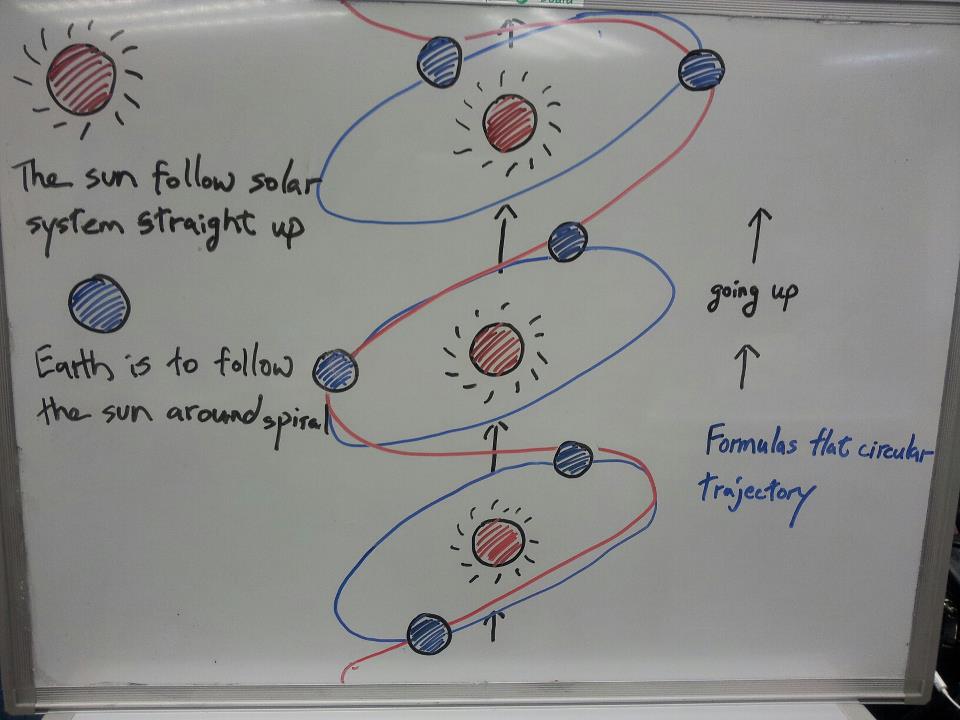 The sun follow solar
system straight up
Earth is to follow
the sun around spiral
going up
Formulas flat circular
trajectory